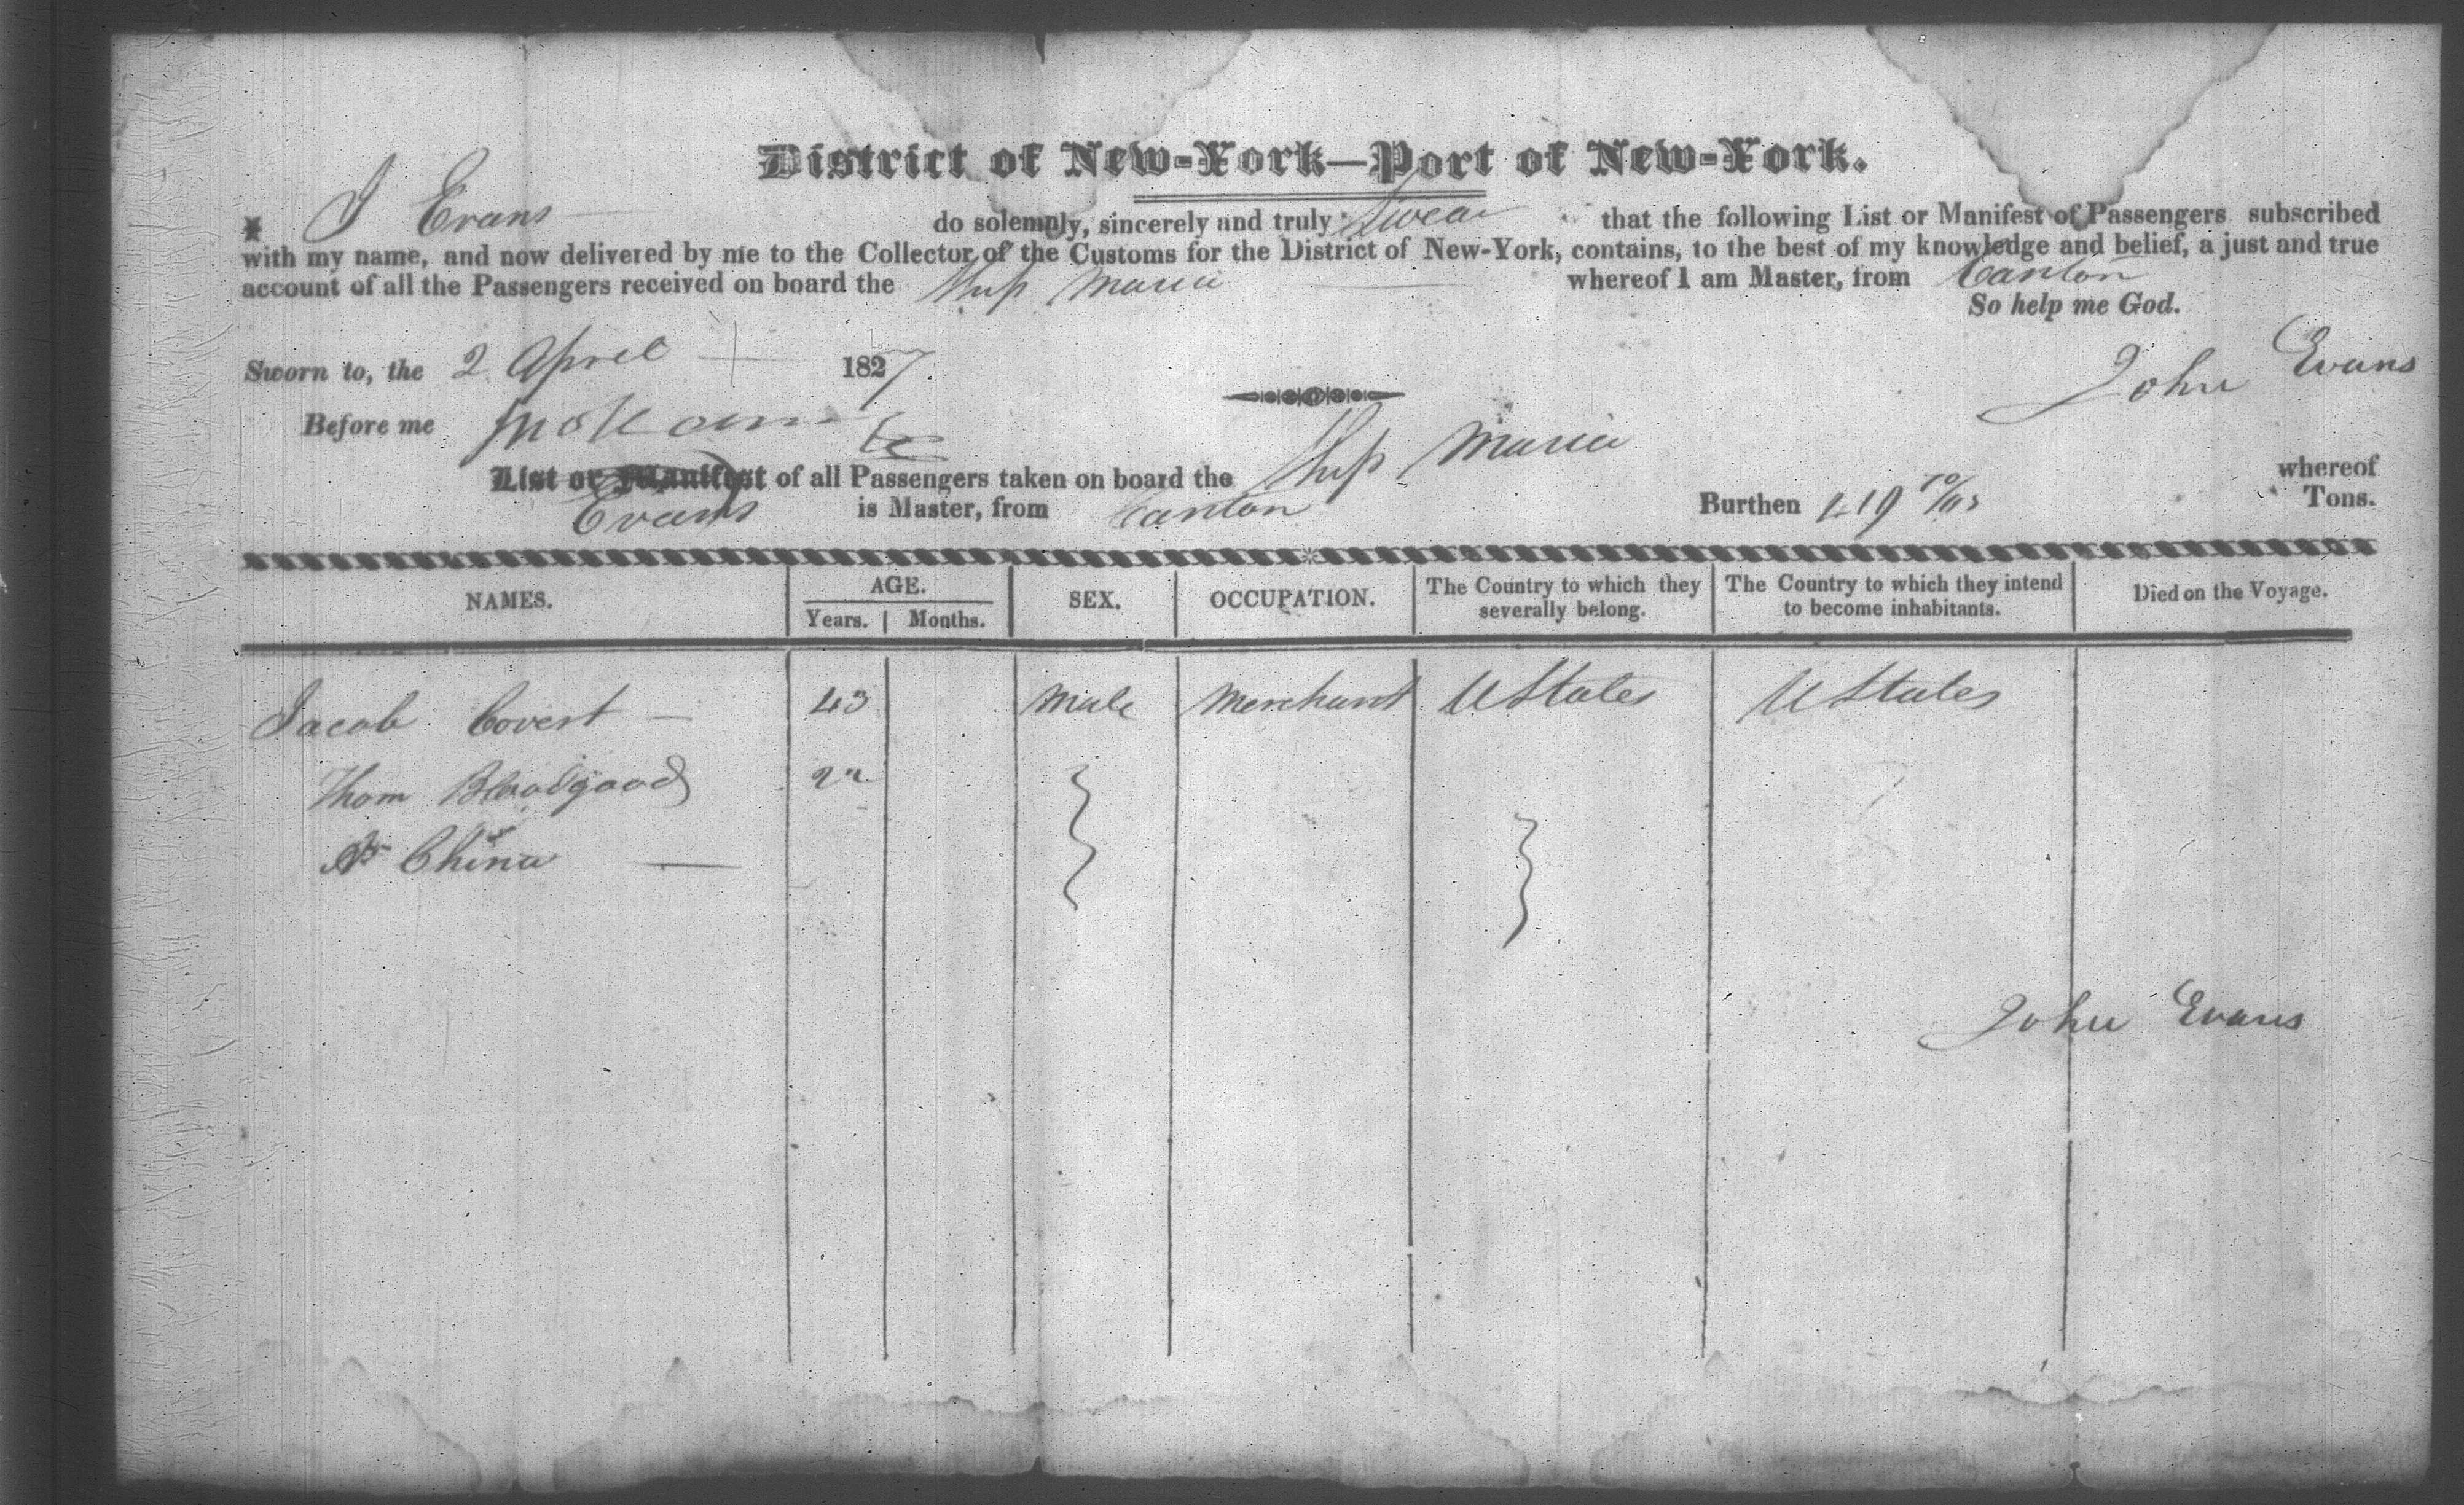 District of New-York—Port of New-York.
I Evans do solemnly, sincerely and truly Swear that the following List or Manifest of Passengers subscribed
with my name, and now delivered by me to the Collector of the Customs for the District of New-York, contains, to the best of my knowledge and belief, a just and true
account of all the Passengers received on board the Ship Maria whereof I am Master, from Canton
So help me God.
Sworn to, the 2 April 1827. John Evans
Before me
List or Manifest of all Passengers taken on board the Ship Maria whereof
Evans is Master, from Canton Burthen 419 Tons.
NAMES. AGE. SEX. OCCUPATION. The Country to which they severally belong. The Country to which they intend to become inhabitants. Died on the Voyage.
Years. Months.
Jacob Covert 43 Male Merchant U States U States
Thom Bloodgood 22
China
John Evans